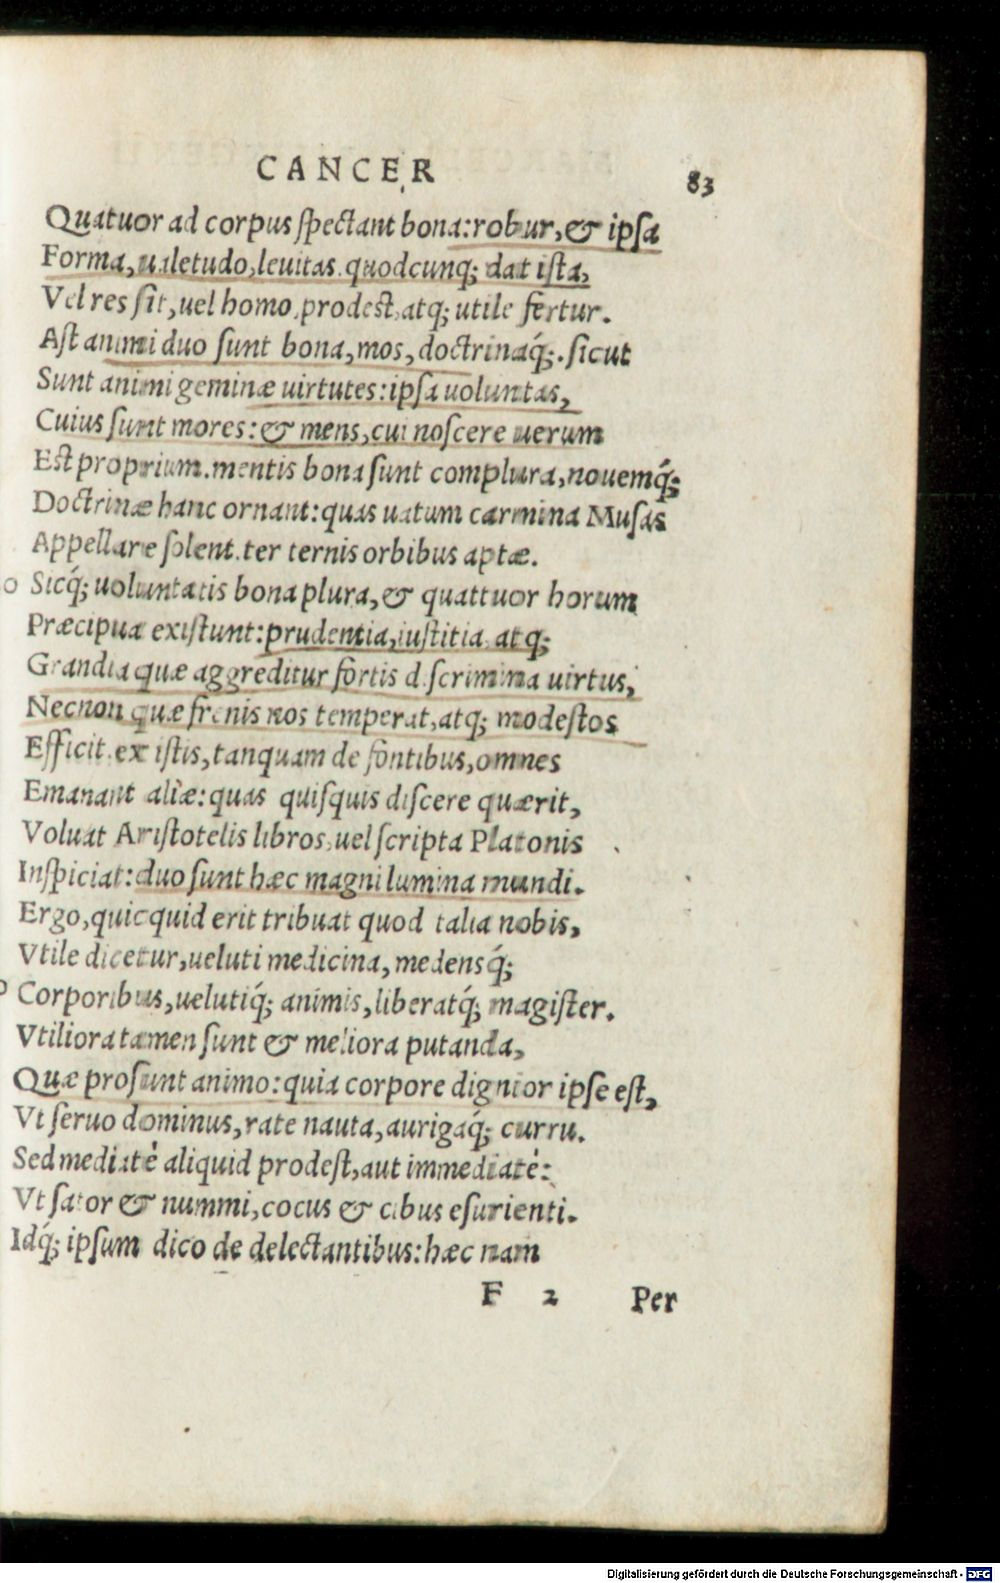 CANCER 83
Quatuor ad corpus spectant bona: robur, & ipsa
Forma, ualetudo, leuitas. quodcunq; dat ista,
Vel res sit, uel homo, prodest, atq; utile fertur.
Ast animi duo sunt bona, mos, doctrinaq́;. sicut
Sunt animi geminæ uirtutes: ipsa uoluntas,
Cuius sunt mores: & mens, cui noscere uerum
Est proprium. mentis bona sunt complura, nouemq́;
Doctrinæ hanc ornant: quas uatum carmina Musas
Appellare solent. ter ternis orbibus aptæ.
o Sicq́; uoluntatis bona plura, & quattuor horum
Præcipua existunt: prudentia, iustitia, atq;
Grandia quæ aggreditur fortis discrimina uirtus,
Necnon quæ frenis nos temperat, atq; modestos
Efficit. ex istis, tanquam de fontibus, omnes
Emanant aliæ: quas quisquis discere quærit,
Voluat Aristotelis libros, uel scripta Platonis
Inspiciat: duo sunt hæc magni lumina mundi.
Ergo, quicquid erit tribuat quod talia nobis,
Vtile dicetur, ueluti medicina, medensq́;
Corporibus, uelutiq́; animis, liberatq́; magister.
Vtiliora tamen sunt & meliora putanda,
Quæ prosunt animo: quia corpore dignior ipse est,
Vt seruo dominus, rate nauta, aurigaq́; curru.
Sed mediatè aliquid prodest, aut immediatè:
Vt sator & nummi, cocus & cibus esurienti.
Idq́; ipsum dico de delectantibus: hæc nam
F 2 Per
Digitalisierung gefördert durch die Deutsche Forschungsgemeinschaft - DFG